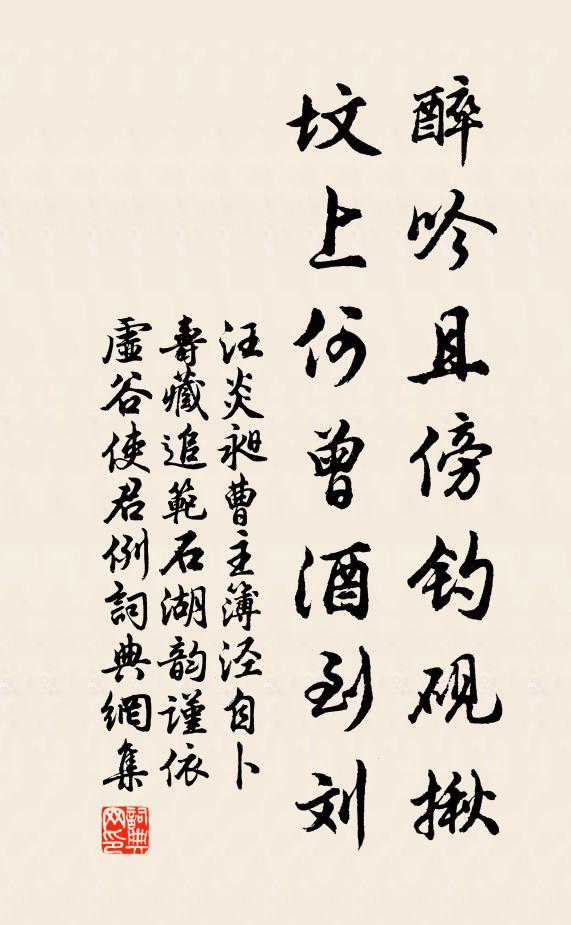 醉吟且傍钓砚揪
坟上何曾酒到刘
汪炎昶曹主簿泾自卜
壽藏追範石湖韵謹依
虛谷使君例詞典網集
詞典网印